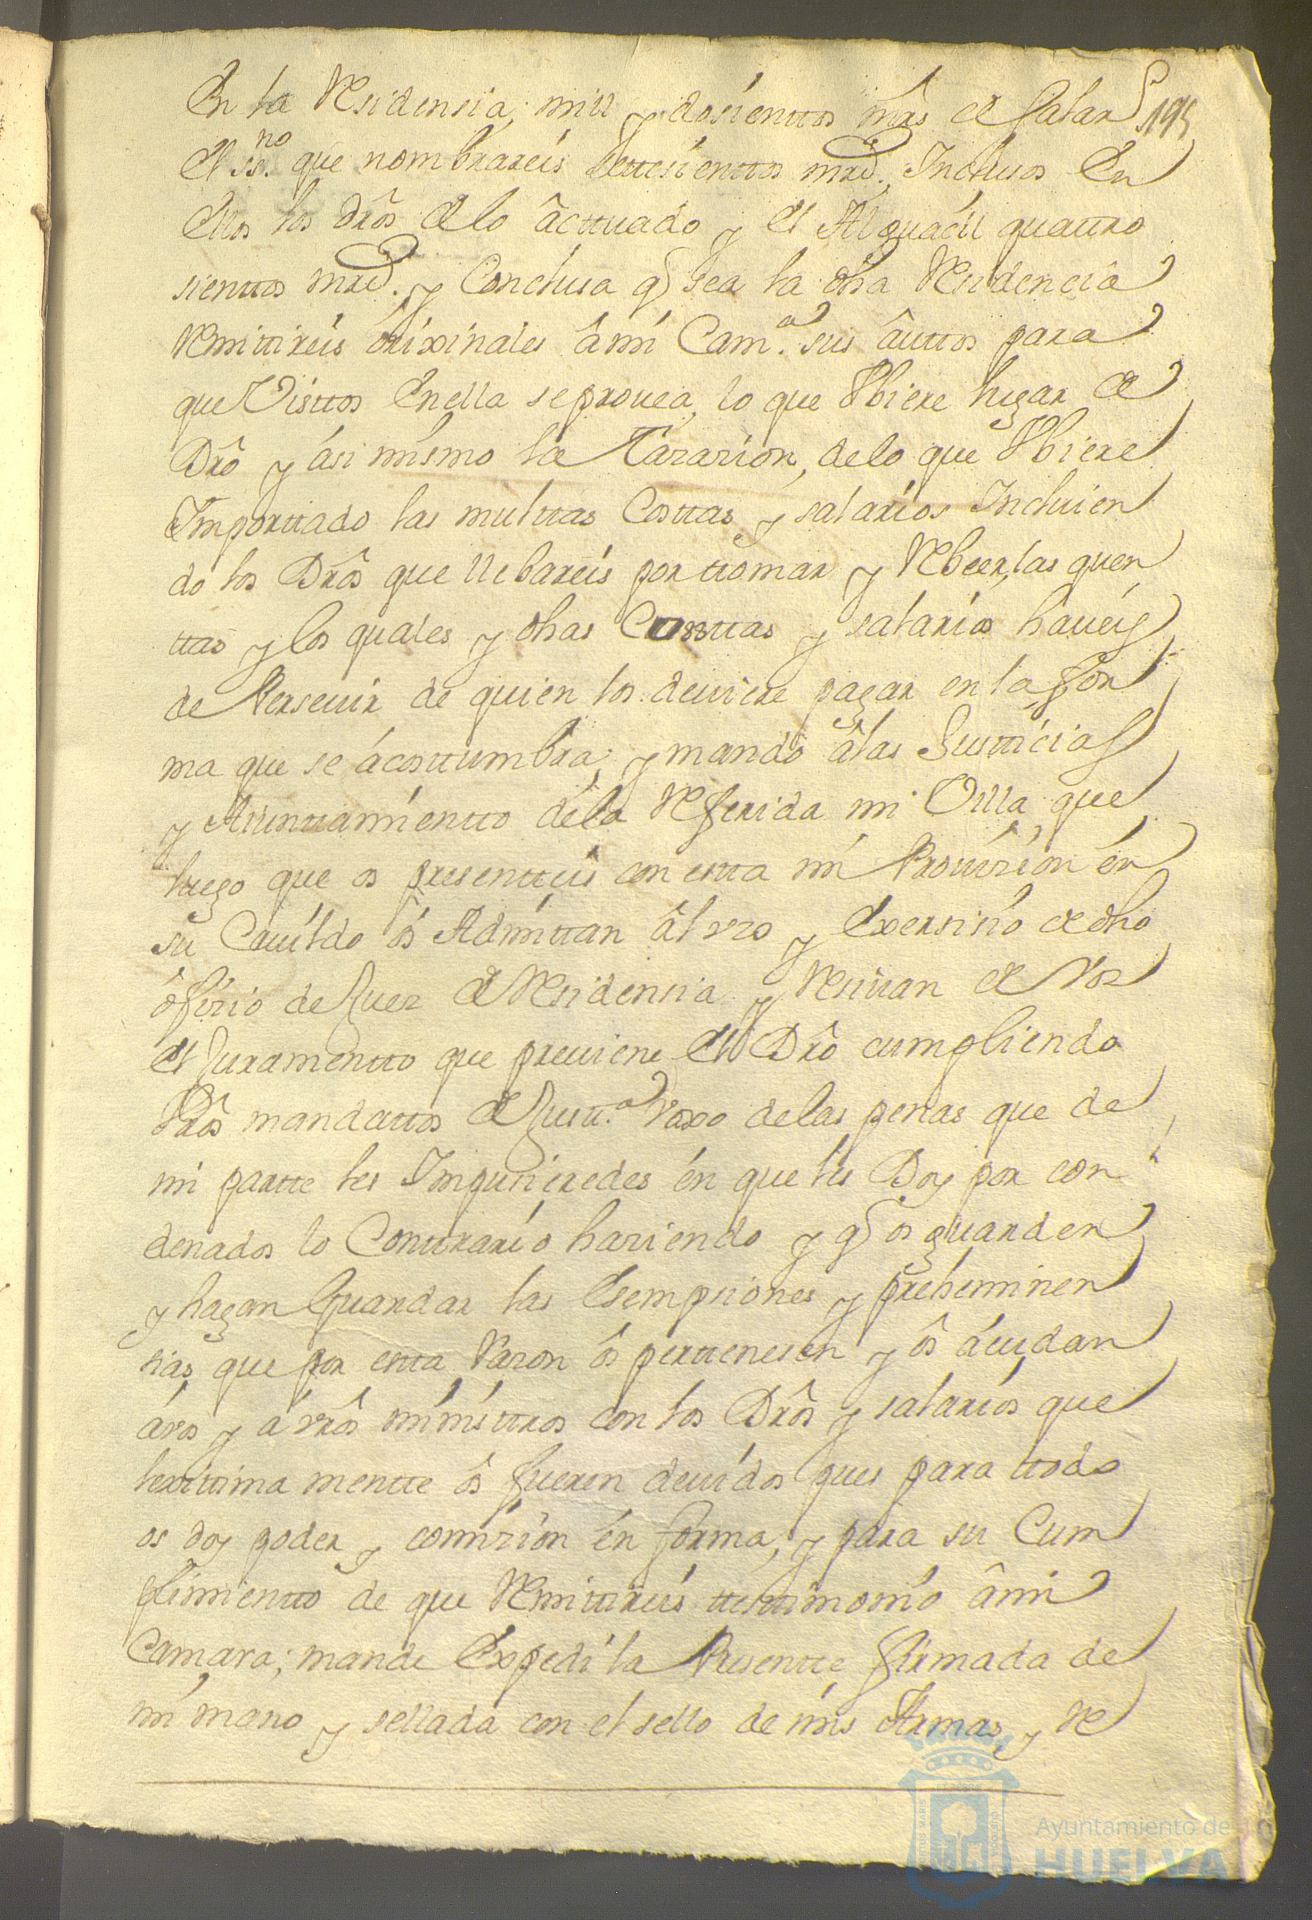 En la Residensia, mill y dosienttos mrs de salar
195
El ss.no que nombrareis settesienttos mrd. Inclusos En
Ellos los drôs de lo âcttuado y El Alguácil quattro
sienttos mrd. y Conclusa q sea la dha Residencia
Remittireis òrixinales âmi Cam.a sus âuttos para
que Visttos Enella seprovea, lo que Vbiere lugar de
Drô y ási mismo la Tazazion, delo que Vbiere
Importtado las multtas Costtas y salarios Incluien
do los Drôs que llebareis por ttomar y Rbeer, las quen
ttas y los quales y dhas Costtas y salarios haveis
de Persevir de quien los deviere pagar en la for
ma que se ácosttumbra; y mando âlas Justticias
y Aiunttamientto déla Referida mi Villa que
luego que os presentteis con estta mi Provizion én
su Cavildo ôs Admittan âl vzo y Exersisio de dho
ôfizio de Juez de Residensia y Resivan de Vos
el Juramentto que previene El Drô cumpliendo
Vrôs mandattos de Justt.a vaxo delas penas que de
mi partte les Impusieredes én que les Doy por con
denados lo Conttrario haziendo y q os guarden
y hagan Guardar las Esempsiones y preheminen
sias que por estta Razon ôs perttenesen y ôs ácudan
ávos y á vrôs ministtros con los Drôs y salarios que
lexittima mentte ôs fueren devidos pues para ttodo
os doy poder y comizion én forma, y para su Cum
plimientto de que Remittireis ttesttimonio âmi
Camara; mande Expedi la Presentte firmada de
mi mano y sellada con el sello de mis Armas, y Re
Ayuntamiento de
HUELVA